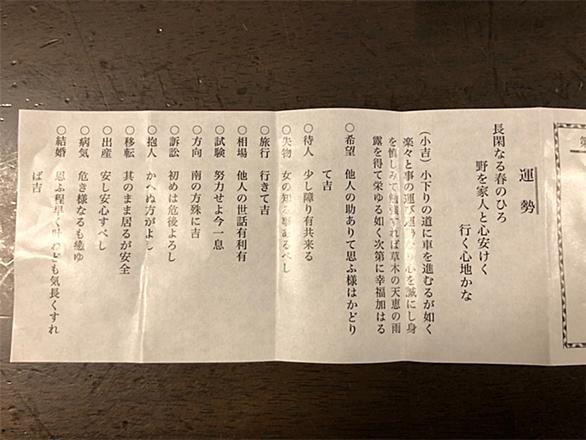 第
運勢
長閑なる春のひろ
野を家人と心安けく
行く心地かな
(小吉) 小下りの道に車を進むるが如く
楽々と事の運び運りなり心を誠にし身
を慎しみて勉強すれば草木の天恵の雨
露を得て栄ゆる如く次第に幸福加はる
○希望 他人の助ありて思ふ様はかどり
て吉
○待人 少し障り有共来る
○失物 女の知る事あるべし
○旅行 行きて吉
○相場 他人の世話有利有
○試験 努力せよ今一息
○方向 南の方殊に吉
○訴訟 初めは危後よろし
○抱人 かへぬ方がよし
○移転 其のまま居るが安全
○出産 安し安心すべし
○病気 危き様なるも癒ゆ
○結婚 思ふ程早く叶わねども気長くすれ
ば吉